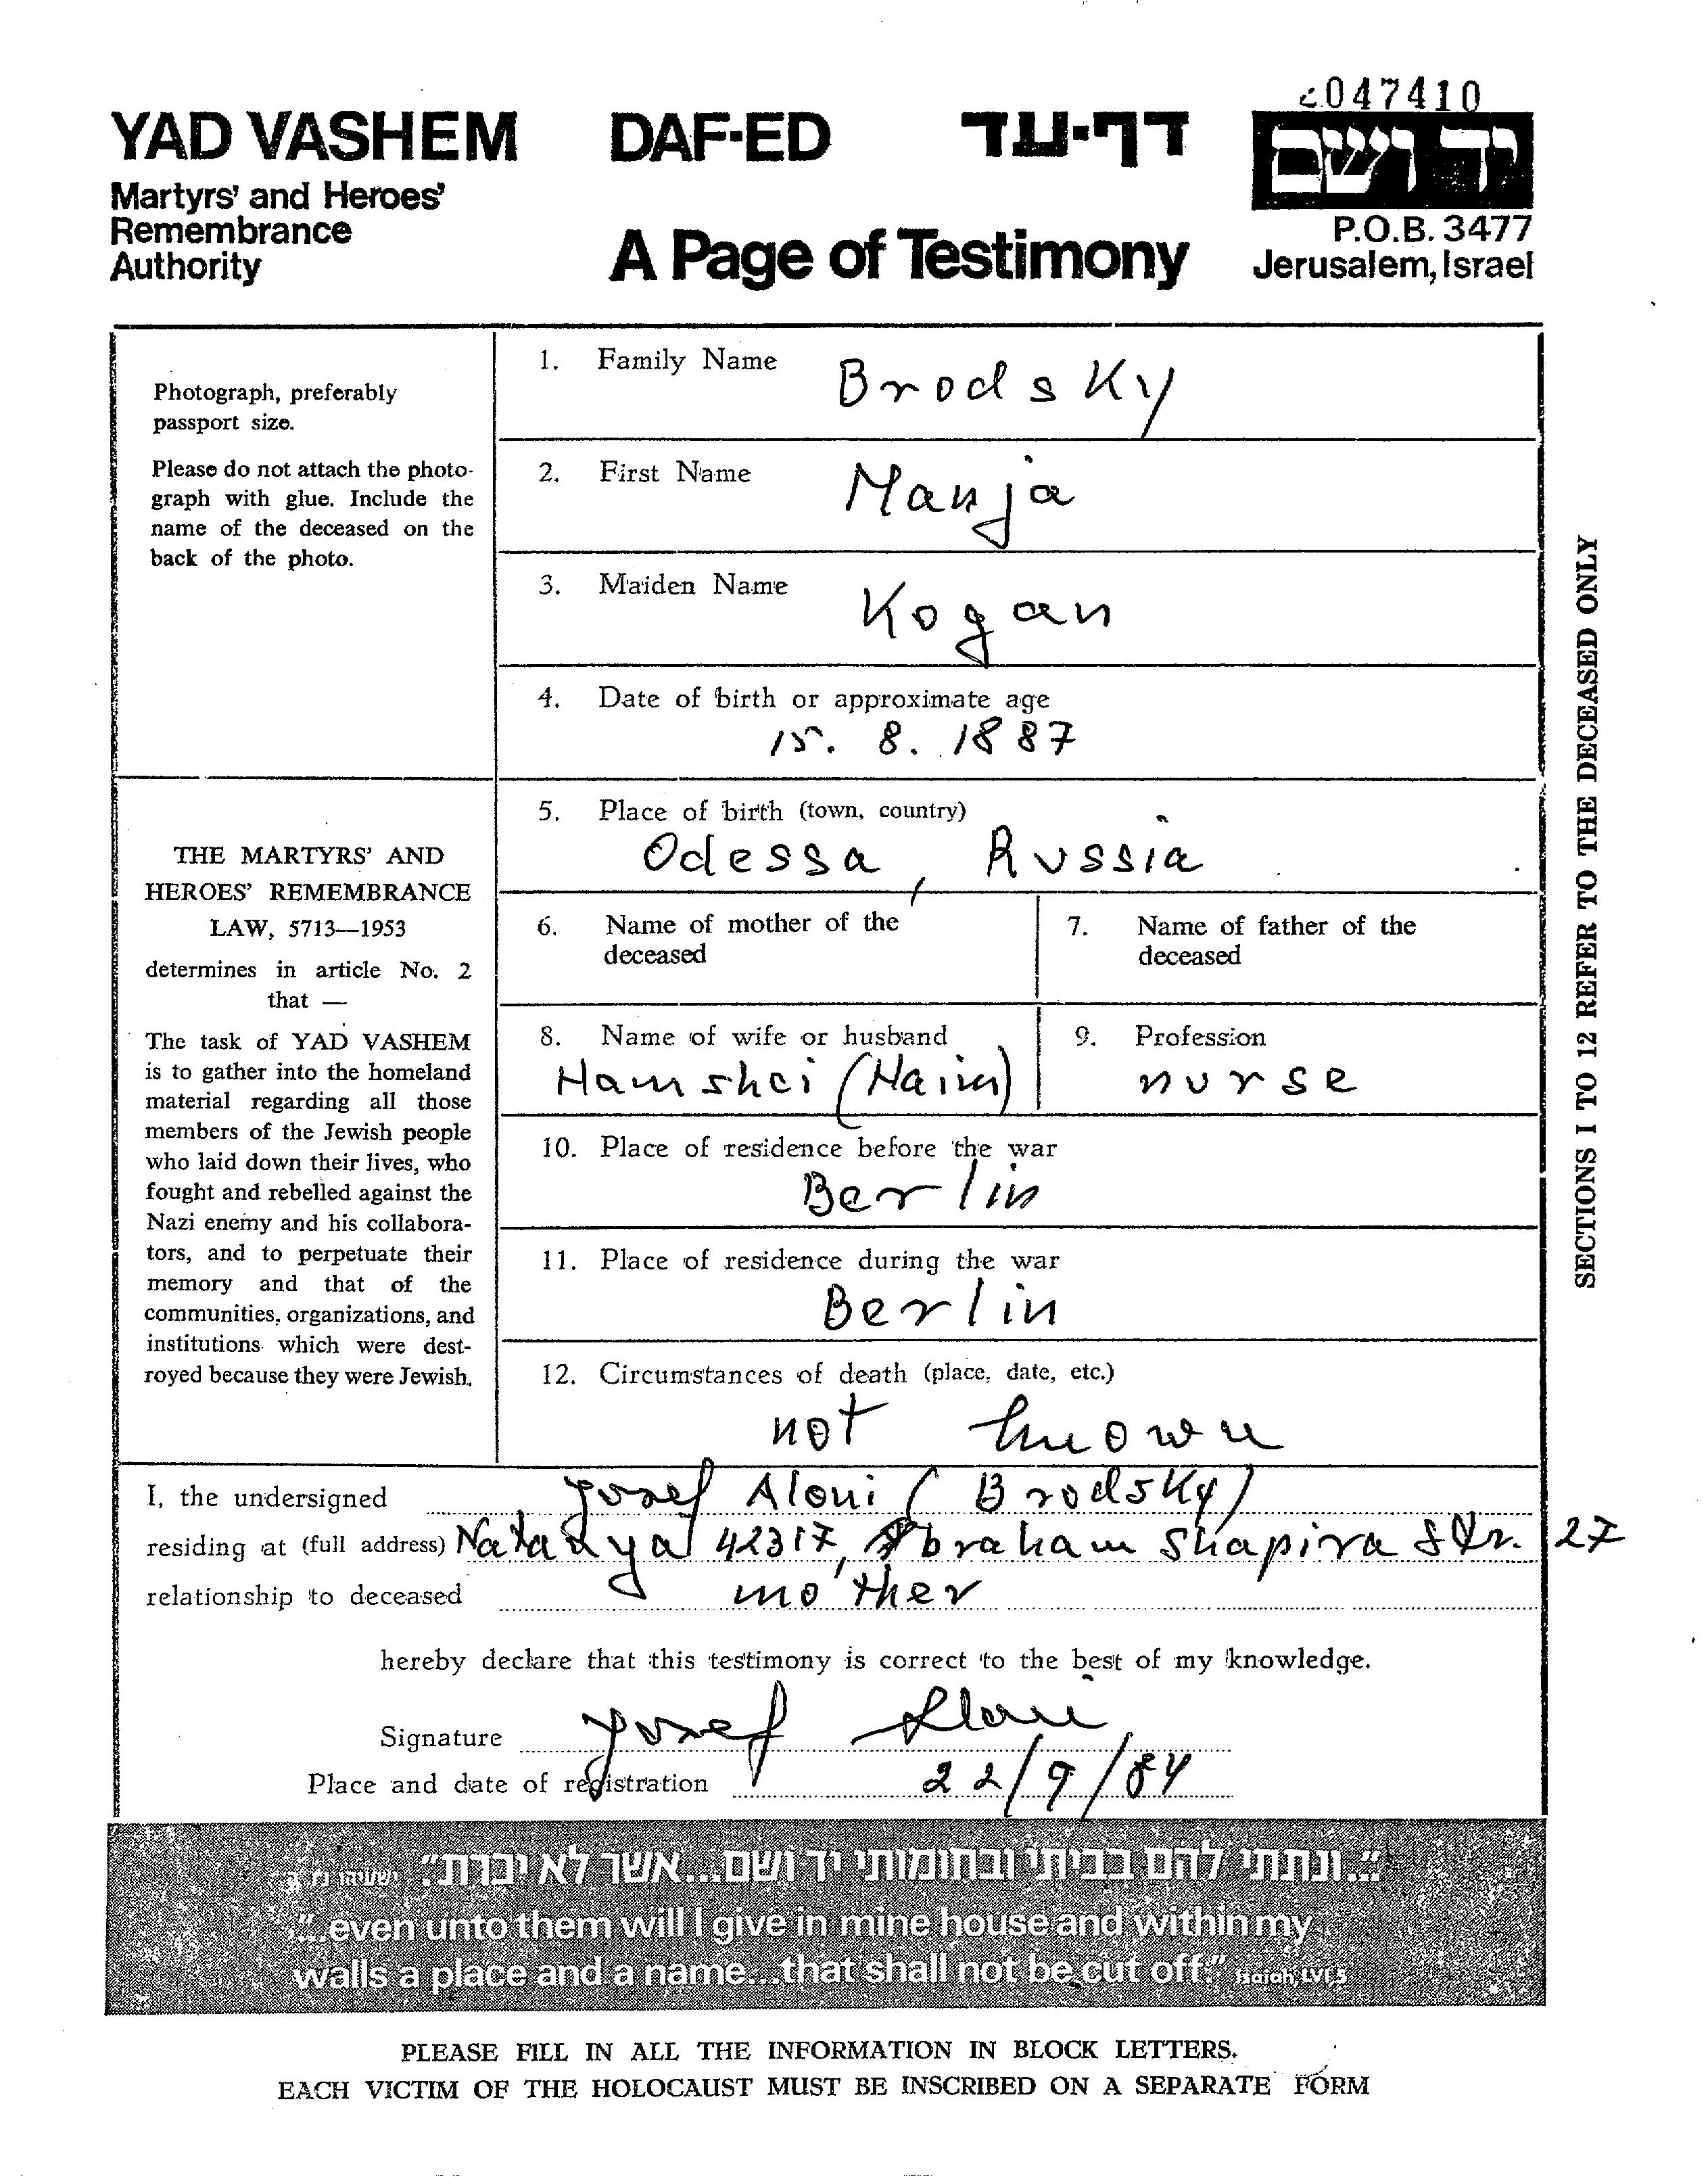 047410
YAD VASHEM DAF-ED דף-עד יד ושם
Martyrs' and Heroes'
Remembrance
Authority
A Page of Testimony
P.O.B. 3477
Jerusalem, Israel
Photograph, preferably
passport size.
Please do not attach the photo-
graph with glue. Include the
name of the deceased on the
back of the photo.
THE MARTYRS' AND
HEROES' REMEMBRANCE
LAW, 5713—1953
determines in article No. 2
that —
The task of YAD VASHEM
is to gather into the homeland
material regarding all those
members of the Jewish people
who laid down their lives, who
fought and rebelled against the
Nazi enemy and his collabora-
tors, and to perpetuate their
memory and that of the
communities, organizations, and
institutions which were dest-
royed because they were Jewish.
1. Family Name Brodsky
2. First Name Manja
3. Maiden Name Kogan
4. Date of birth or approximate age
15. 8. 1887
5. Place of birth (town, country)
Odessa, Russia
6. Name of mother of the
deceased
7. Name of father of the
deceased
8. Name of wife or husband
Hamshei (Haim)
9. Profession
nurse
10. Place of residence before the war
Berlin
11. Place of residence during the war
Berlin
12. Circumstances of death (place, date, etc.)
not known
SECTIONS 1 TO 12 REFER TO THE DECEASED ONLY
I, the undersigned Josef Aloni (Brodsky)
residing at (full address) Natanya 42317, Abraham Shapira Str. 27
relationship to deceased mother
hereby declare that this testimony is correct to the best of my knowledge.
Signature Josef Aloni
Place and date of registration 22/9/84
"...ונתתי להם בביתי ובחומותי יד ושם...אשר לא יכרת". ישעיהו
"...even unto them will I give in mine house and within my
walls a place and a name...that shall not be cut off." Isaiah, LVI, 5
PLEASE FILL IN ALL THE INFORMATION IN BLOCK LETTERS.
EACH VICTIM OF THE HOLOCAUST MUST BE INSCRIBED ON A SEPARATE FORM